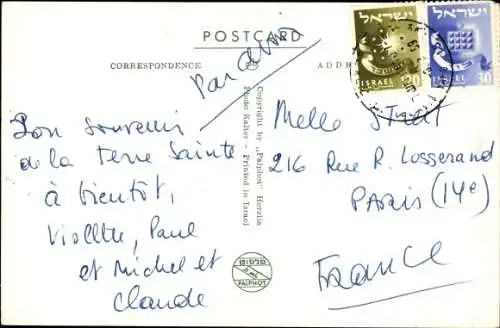 POSTCARD
CORRESPONDENCE
ADDR
Par avion
ישראל
ISRAEL
120
ישראל
ISRAEL
30
Bon souvenir
de la terre Sainte
à bientôt,
Violette, Paul
et Michel et
Claude
Copyright by „Palphot" Herzlia
Photo Kalter - Printed in Israel
פלפוט
PALPHOT
Melle
216 Rue R. Losserand
PARIS (14e)
FRANCE